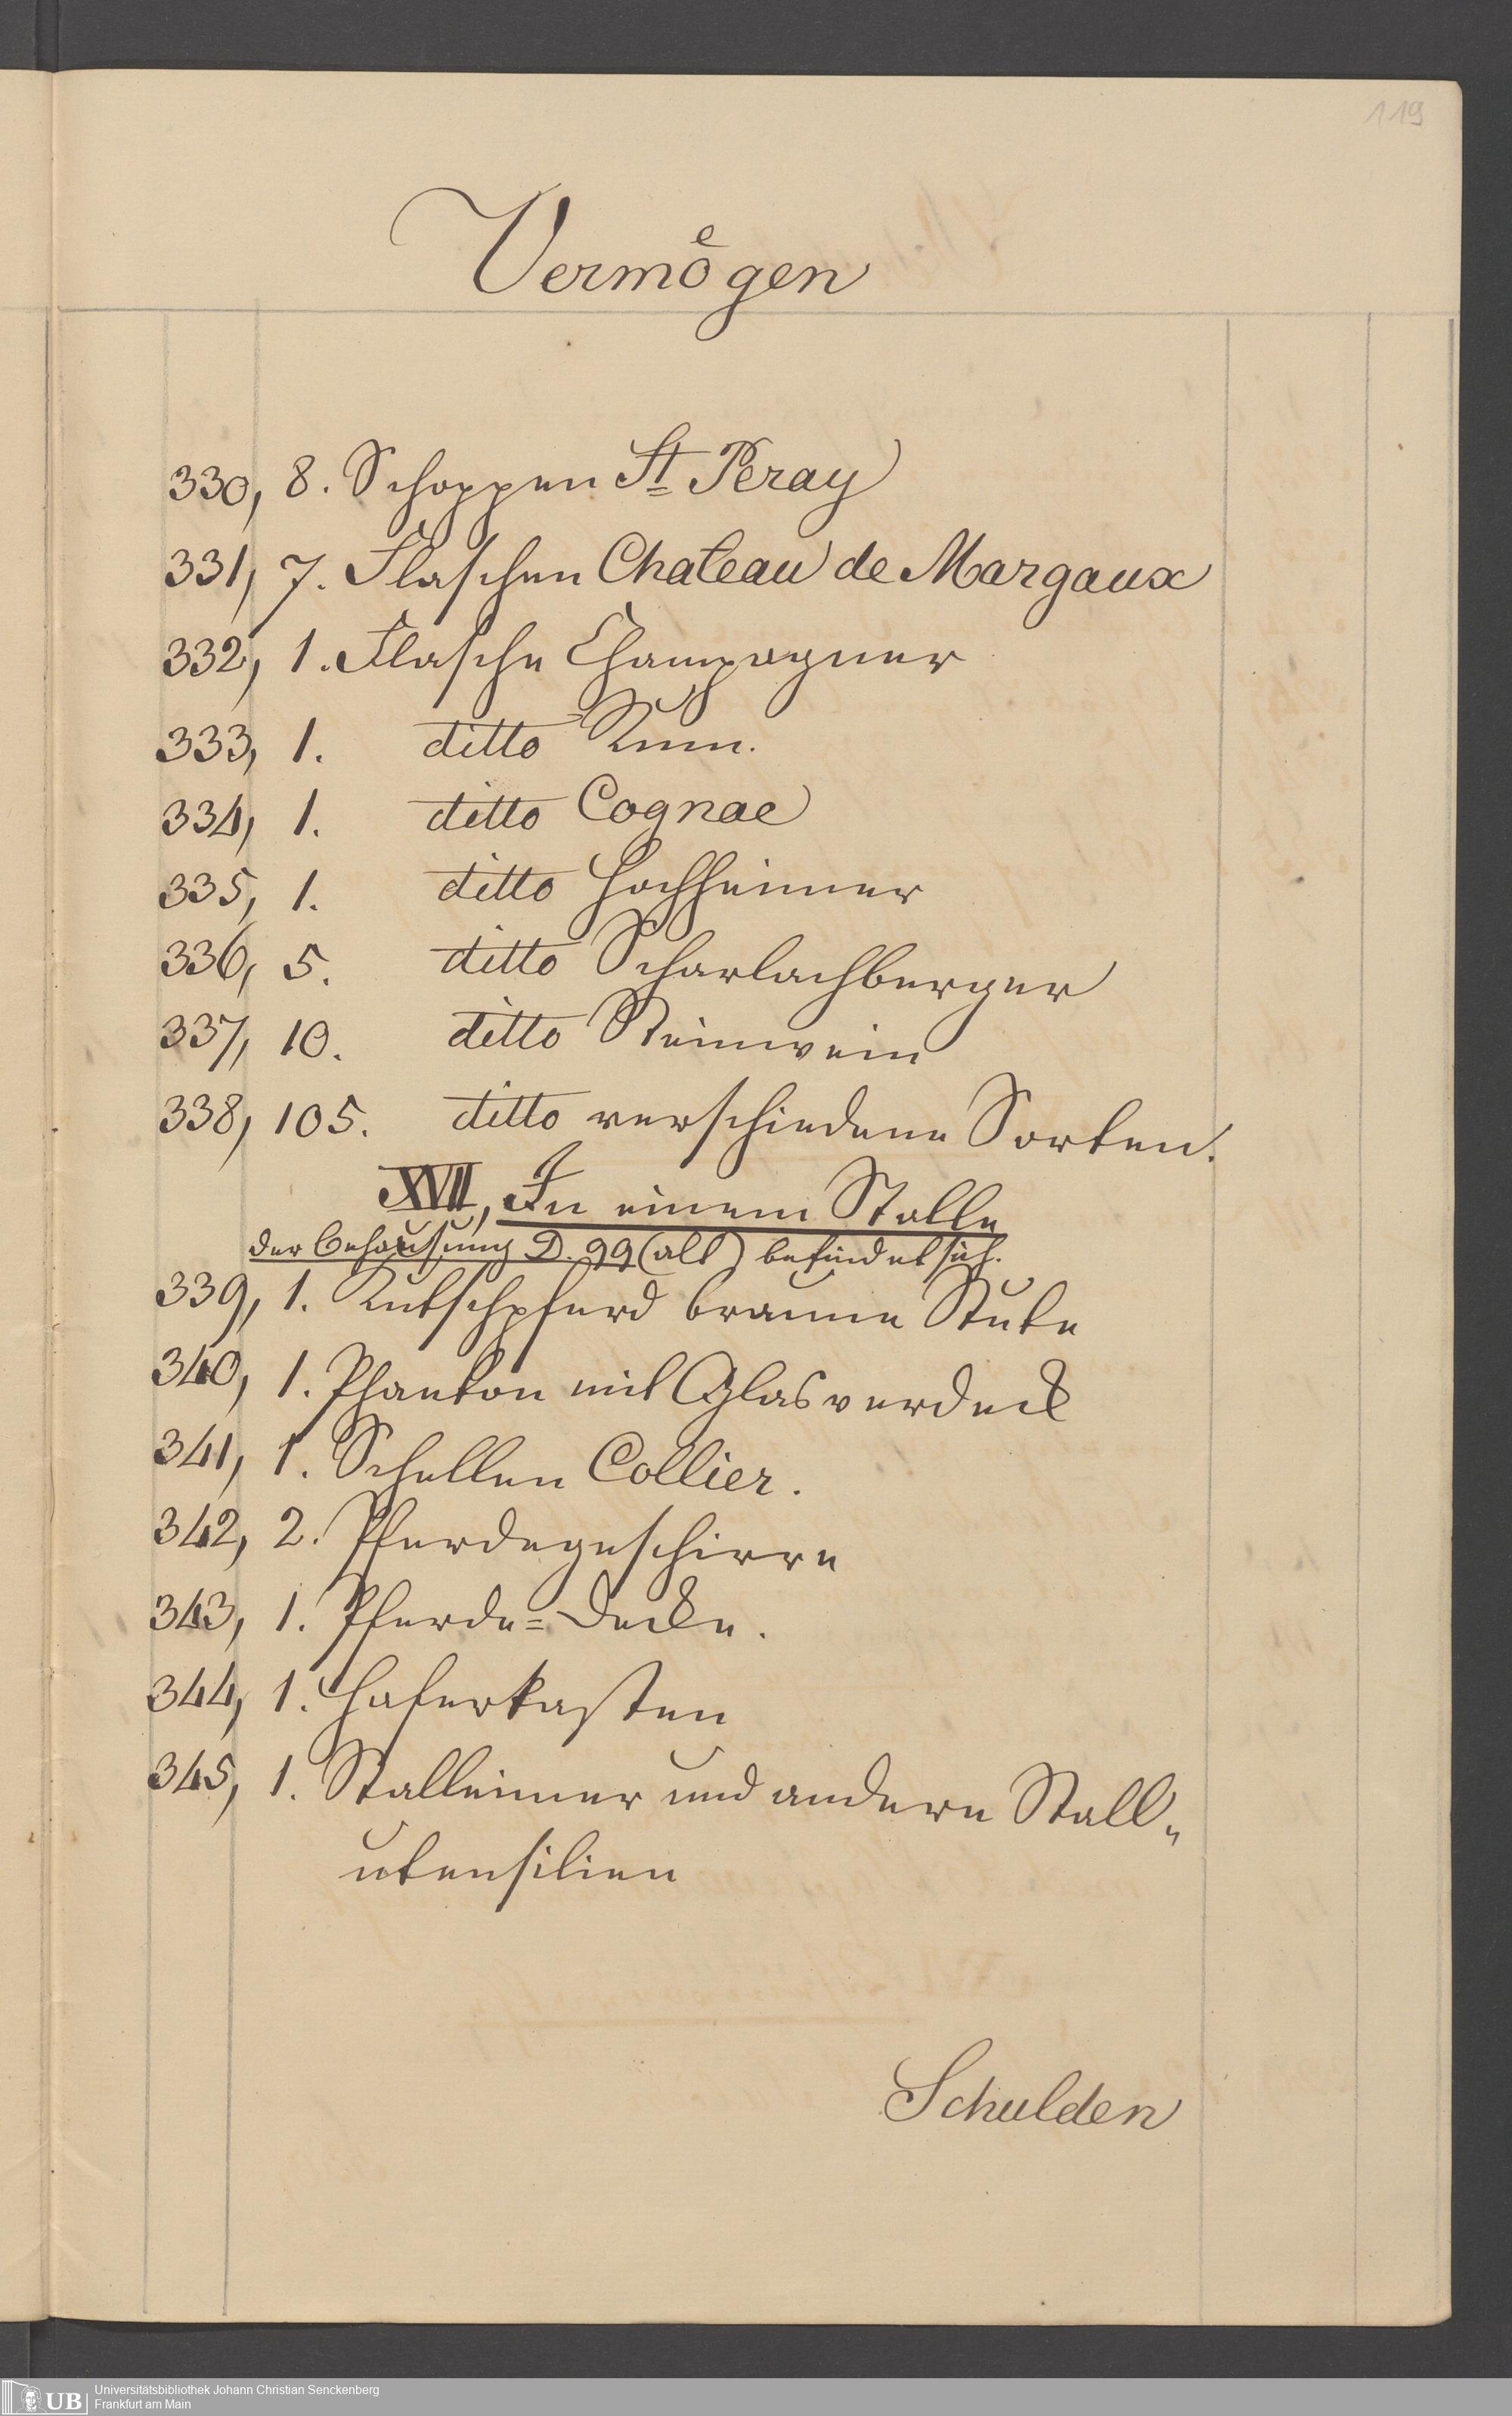 119
Vermögen
330, 8. Schoppen St Peray
331, 7. Flaschen Chateau de Margaux
332, 1. Flasche Champagner
333, 1. ditto Rum.
334, 1. ditto Cognac
335, 1. ditto Hochheimer
336, 5. ditto Scharlachberger
337, 10. ditto Steinwein
338, 105. ditto verschiedene Sorten.
XVII, In einem Stalle
der Behausung D. 99 (alt) befindet sich.
339, 1. Kutschpferd braune Stute
340, 1. Phaeton mit Glasverdeck
341, 1. Schellen Collier.
342, 2. Pferdegeschirre
343, 1. Pferde=Decke.
344, 1. Haferkasten
345, 1. Stalleimer und andere Stall„
utensilien
Schulden
UB Universitätsbibliothek Johann Christian Senckenberg
Frankfurt am Main